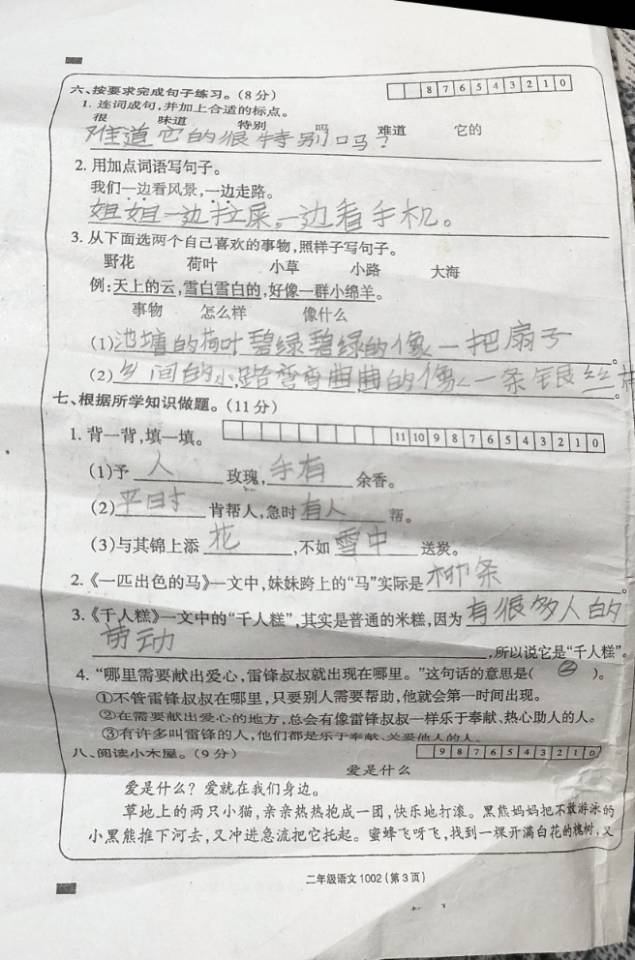 六、按要求完成句子练习。(8分) 8 7 6 5 4 3 2 1 0
1. 连词成句,并加上合适的标点。
很 味道 特别 吗 难道 它的
难道它的很特别吗?
2. 用加点词语写句子。
我们一边看风景,一边走路。
姐姐一边拉屎。一边看手机。
3. 从下面选两个自己喜欢的事物,照样子写句子。
野花 荷叶 小草 小路 大海
例:天上的云,雪白雪白的,好像一群小绵羊。
事物 怎么样 像什么
(1)池塘的荷叶碧绿碧绿的像一把扇子。
(2)乡间的小路弯弯曲曲的像一条银丝带。
七、根据所学知识做题。(11分)
1. 背一背,填一填。 11 10 9 8 7 6 5 4 3 2 1 0
(1)予人玫瑰,手有余香。
(2)平时肯帮人,急时有人帮。
(3)与其锦上添花,不如雪中送炭。
2.《一匹出色的马》一文中,妹妹跨上的“马”实际是柳条。
3.《千人糕》一文中的“千人糕”,其实是普通的米糕,因为有很多人的
劳动,所以说它是“千人糕”。
4. “哪里需要献出爱心,雷锋叔叔就出现在哪里。”这句话的意思是(②)。
①不管雷锋叔叔在哪里,只要别人需要帮助,他就会第一时间出现。
②在需要献出爱心的地方,总会有像雷锋叔叔一样乐于奉献、热心助人的人。
③有许多叫雷锋的人,他们都是乐于奉献、关爱他人的人。
八、阅读小木屋。(9分) 9 8 7 6 5 4 3 2 1 0
爱是什么
爱是什么?爱就在我们身边。
草地上的两只小猫,亲亲热热抱成一团,快乐地打滚。黑熊妈妈把不敢游泳的
小黑熊推下河去,又冲进急流把它托起。蜜蜂飞呀飞,找到一棵开满白花的槐树,又
二年级语文 1002(第3页)